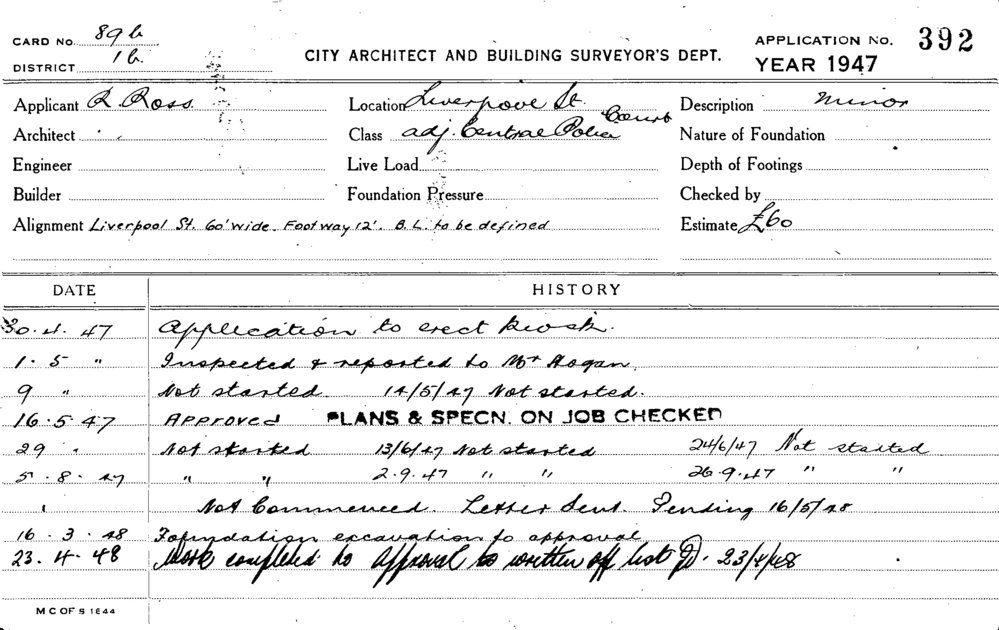 CARD No. 89b
DISTRICT 1b
CITY ARCHITECT AND BUILDING SURVEYOR'S DEPT.
APPLICATION No. 392
YEAR 1947
Applicant R. Ross
Location Liverpool St.
Description minor
Architect
Class adj. Central Police Court
Nature of Foundation
Engineer
Live Load
Depth of Footings
Builder
Foundation Pressure
Checked by
Alignment Liverpool St. 60' wide. Footway 12'. B.L. to be defined
Estimate £60
DATE HISTORY
30.4.47 Application to erect kiosk.
1.5 " Inspected & reported to Mr Hogan.
9 " Not started. 14/5/47 Not started.
16.5.47 Approved PLANS & SPECN. ON JOB CHECKED
29 " Not started 13/6/47 Not started 24/6/47 Not started
5.8.47 " " 2.9.47 " " 26.9.47 " "
" Not Commenced. Letter Sent. Pending 16/5/48
16.3.48 Foundation excavation to approval
23.4.48 Work completed to approval to written off list 23/4/48
M C OF S 1844